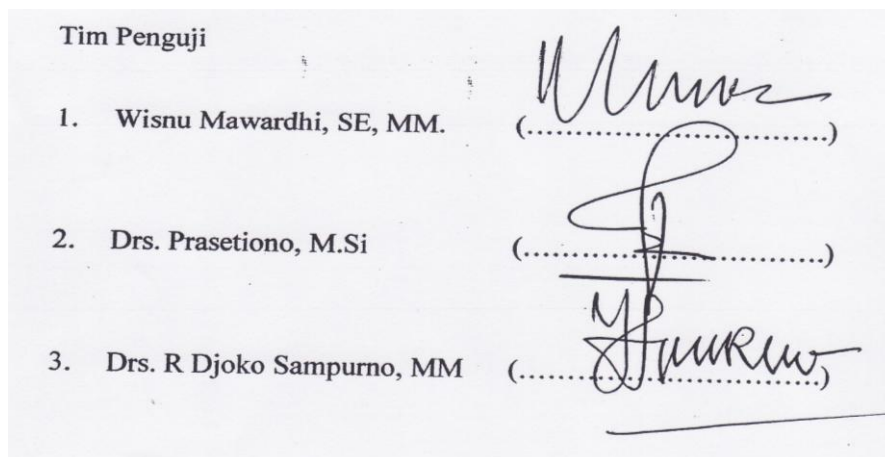 Tim Penguji
1. Wisnu Mawardhi, SE, MM. (..............................)
2. Drs. Prasetiono, M.Si (..............................)
3. Drs. R Djoko Sampurno, MM (..............................)